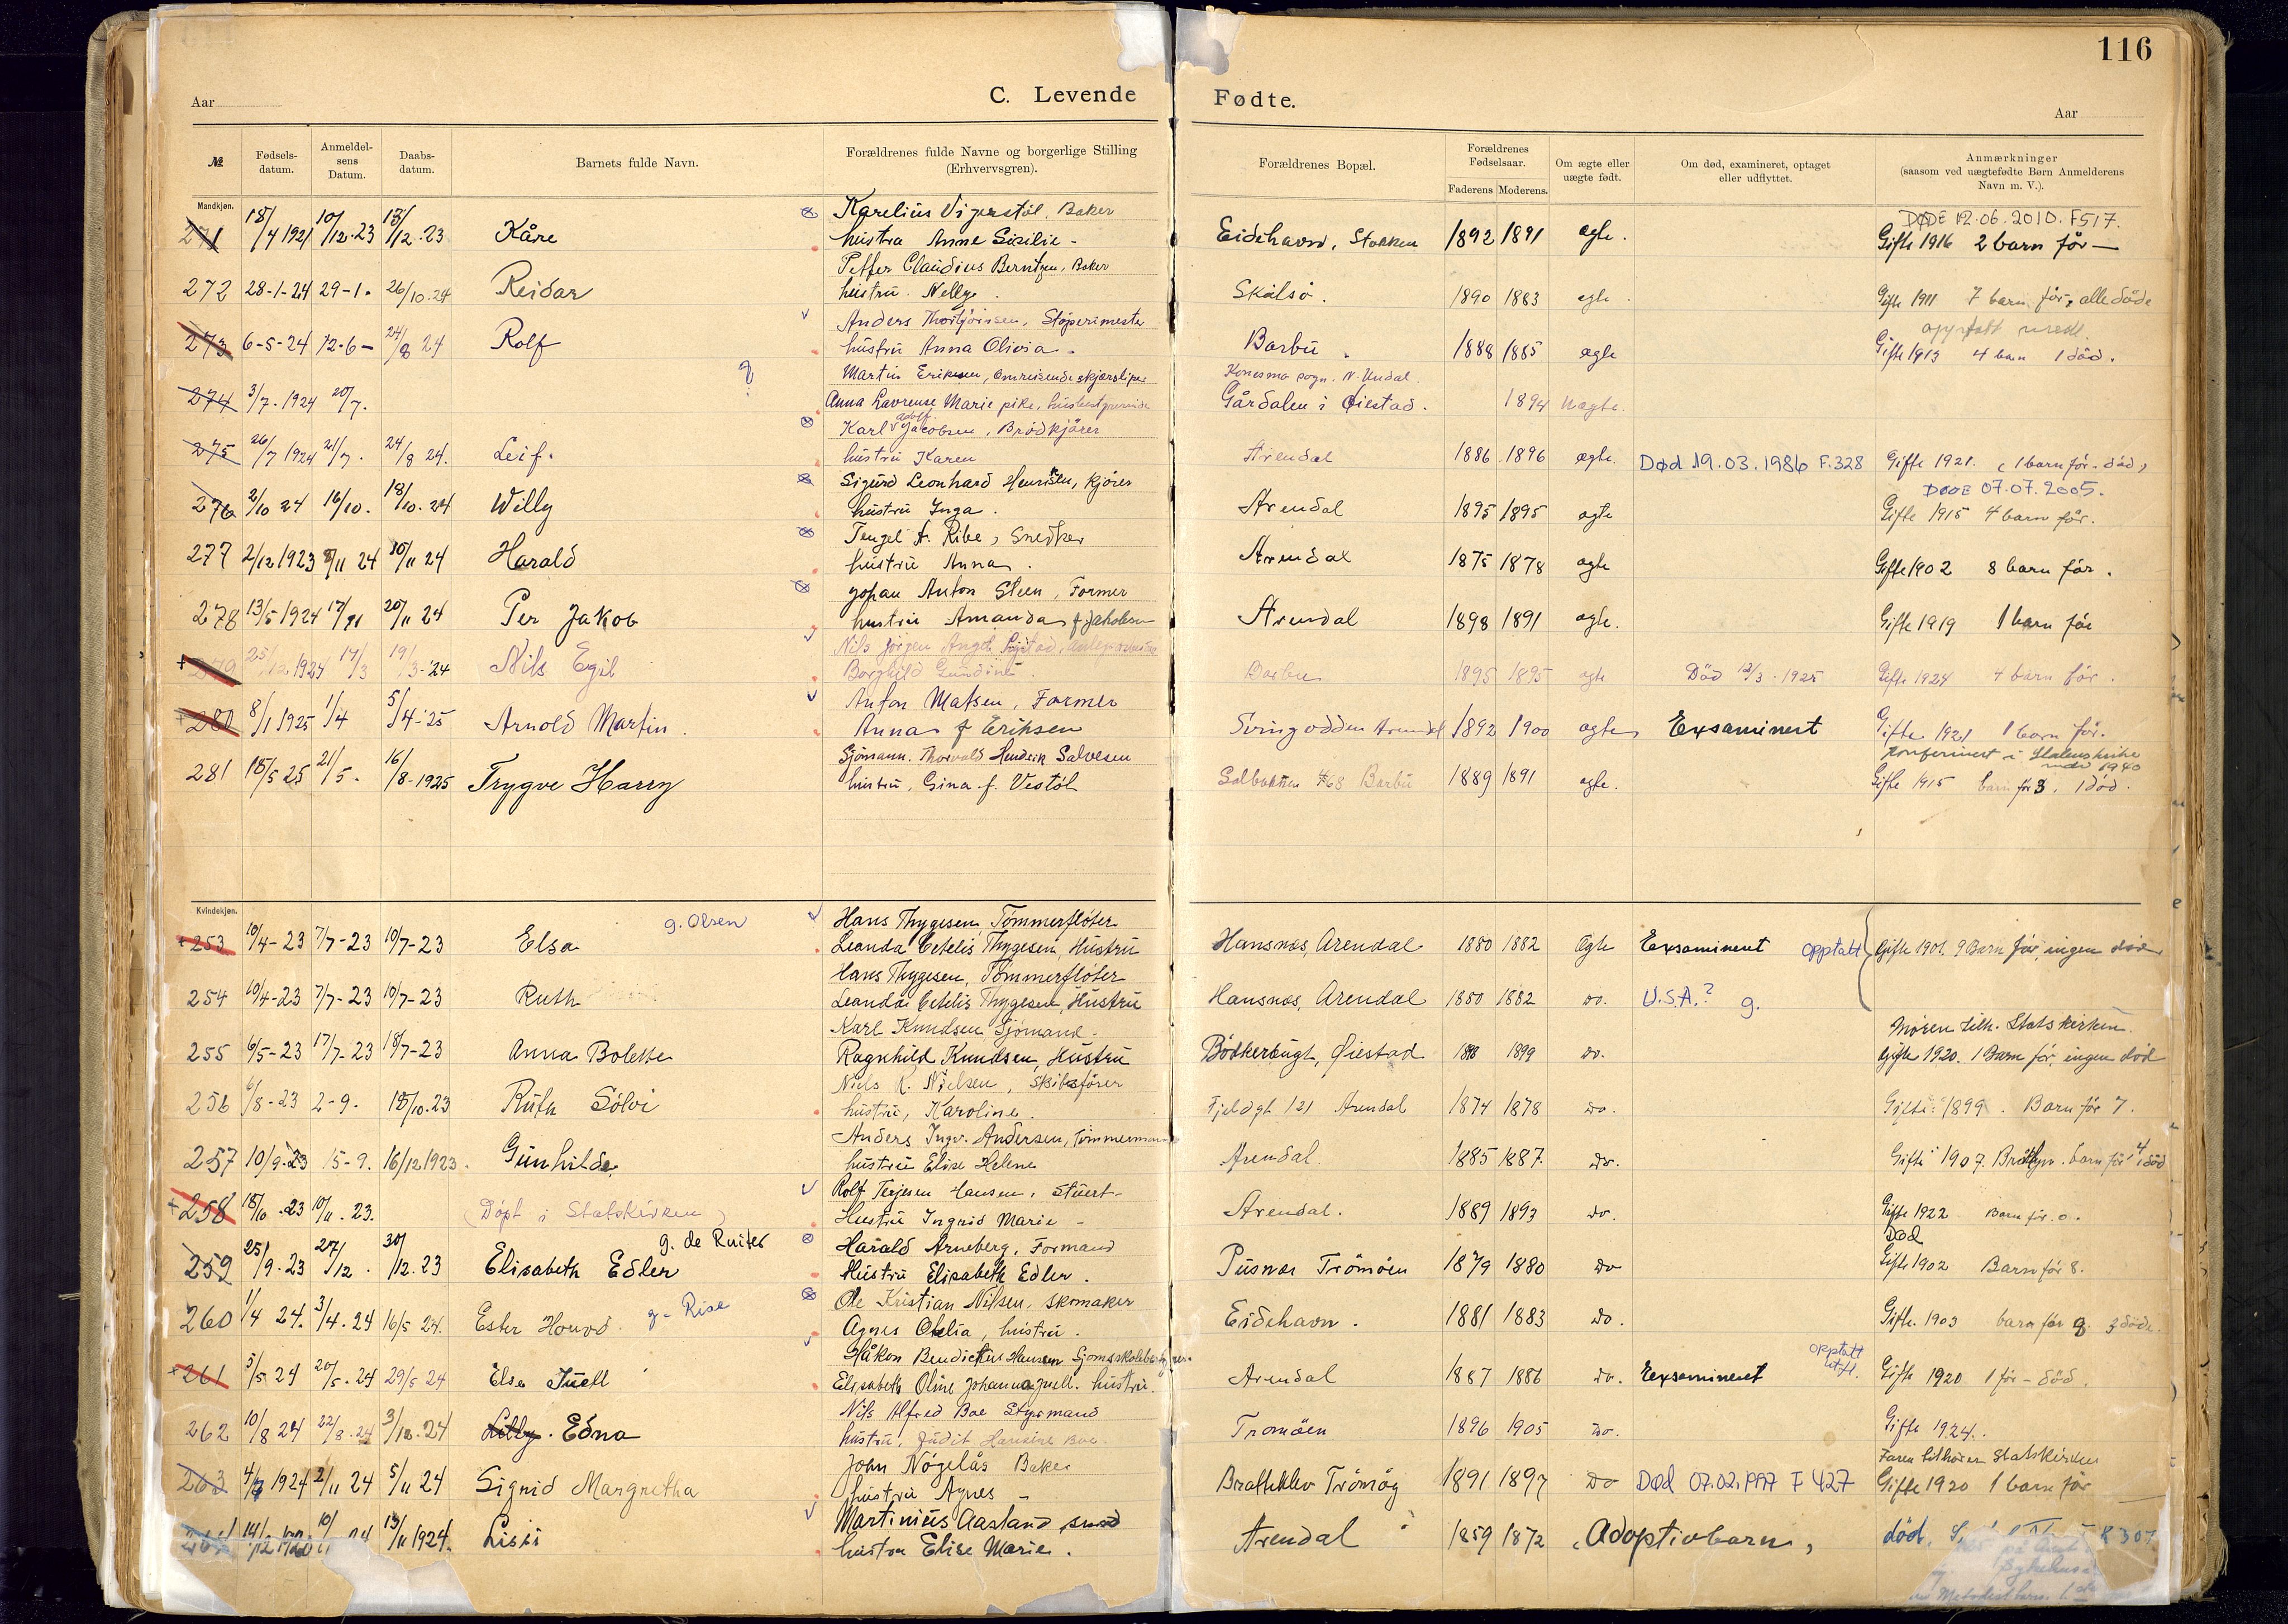 116
C. Levende Fødte.
Aar Aar
№ Fødsels-datum. Anmeldelsens Datum. Daabs-datum. Barnets fulde Navn. Forældrenes fulde Navne og borgerlige Stilling (Erhvervsgren). Forældrenes Bopæl. Forældrenes Fødselsaar. Faderens Moderens. Om ægte eller uægte født. Om død, examineret, optaget eller udflyttet. Anmærkninger (saasom ved uægtefødte Børn Anmelderens Navn m. V.).
Mandkjøn.
Karelius Vigerstøl, Baker DØDE 12.06.2010. F517.
271 18/4 1921 10/12.23 13/12.23 Kåre hustru Anne Sisilie - Eidehavn, Stokken 1892 1891 ægte. Gifte 1916 2 barn før —
Petter Claudius Berntzen, Baker
272 28-1-24 29-1. 26/10.24 Reidar hustru. Nelly. Skilsø. 1890 1883 egte. Gifte 1911 7 barn før, alle døde
Anders Thorbjørnsen, Støperimester
273 6-5-24 12-6- 24/8 24 Rolf hustru Anna Olivia. Barbu. 1888 1885 egte Gifte 1913 4 barn 1 død.
Martin Eriksen, omreisende skjærsliper N. Undal.
274 3/7.1924 20/7. ? Anna Lavrense Marie pike, Gårdalen i Øiestad. 1894 uegte.
Karl Adolf Jacobsen, Brødkjører
275 26/7 1924 21/7. 24/8 24. Leif. hustru Karen Arendal 1886 1896 egte. Død 19.03.1986 F.328 Gifte 1921. (1 barn før - død)
Sigurd Leonhard Henriksen, Kjører DØDE 07.07.2005.
276 2/10 24 16/10. 18/10.24 Willy hustru Inga. Arendal 1895 1895 egte Gifte 1915 4 barn før.
Tengel A. Ribe, Snedker
277 2/12 1923 8/11 24 10/11 24 Harald hustru Anna. Arendal 1875 1878 egte Gifte 1902 8 barn før.
Johan Anton Steen, Former
278 13/5 1924 17/11 20/11 24 Per Jakob hustru Amanda f. Jakobsen Arendal 1898 1891 egte. Gifte 1919 1 barn før
Nils Jørgen
279 25/12 1924 17/3 19/3-24 Nils Egil Borghild Gundine. Barbu 1895 1895 egte Død 12/3.1925 Gifte 1924 4 barn før.
Anton Matsen, Former
280 8/1 1925 1/4 5/4-25 Arnold Martin. Anna f Eriksen Arendal 1892 1900 egte Exsaminert Gifte 1921 1 barn før.
Sjømann. Thorvald Henderik Salvesen Konferinert i Statenskirke 1940
281 18/5 25 21/5. 16/8-1925 Trygve Harry hustru, Gina f. Vestøl Solbakken #68 Barbu 1889 1891 egte. Gifte 1915 barn før 3. 1 død.
Kvindekjøn.
g. Olsen Hans Thygesen, Tømmerfløter
253 10/4-23 7/7-23 10/7-23 Elsa Leanda Cetelis Thygesen, Hustru Hansnes, Arendal 1880 1882 Egte Exsaminert opptatt Gifte 1901. 9 Barn før, ingen død
Hans Thygesen, Tømmerfløter
254 10/4-23 7/7-23 10/7-23 Ruth Leanda Cetelis Thygesen, Hustru Hansnes, Arendal 1880 1882 do. U.S.A.? g.
Karl Knudsen Sjømand - Moren tilh. Statskirken.
255 6/5-23 17/7-23 18/7-23 Anna Bolette Ragnhild Knudsen, Hustru Bødkerbugt, Øiestad 1898 1899 do. Gifte 1920. 1 Barn før, ingen død
Niels K. Nielsen, Skibsfører
256 6/8-23 2-9. 18/10.23 Ruth Sølvi hustru, Karoline. Fjeldgt 121 Arendal 1874 1878 do. Gifte 1899. Barn før 7.
Anders Ingv. Andersen, tømmermann
257 10/9.23 15-9. 16/12 1923. Gunhilde, hustru Elise Helene Arendal 1885 1887. do. Gifte 1907. barn før 4 1 død
Rolf Terjesen Hansen, Stuert-
258 18/10.23 10/11.23. (Døpt i Statskirken) Hustru Ingrid Marie - Arendal. 1889 1893 do. Gifte 1922 Barn før. 0.
g. de Ruiter Harald Arneberg, Formand Død
259 25/9.23 27/12. 30/12.23 Elisabeth Edler Hustru Elisabeth Edler. Pusnes Trømøen 1879 1880 do Gifte 1902 Barn før 8.
Ole Kristian Nilsen, skomaker
260 1/4 24. 3/4.24 16/5 24. Ester Houvd. g - Rise Agnes Otelia, hustru. Eidehavn. 1881 1883 do. Gifte. 1903 barn før 9 3 døde.
Håkon Bendictius Hansen opptatt utfl.
261 5/5 24 20/5.24 29/5 24 Else Juell Elisabeth Oline Johanna Juell. hustru. Arendal 1887 1886 do. Exsaminert Gifte 1920 1 før - død.
Nils Alfred Boe Styrmand
262 10/8 24 22/8.24 3/10.24 Lilly. Edna hustru, Judit Boe. Tromøen 1896 1905 do. Gifte 1924.
John Nøgelås Baker Faren tilhører Statskirken
263 4/7 1924 2/11 24 5/11 24 Sigrid Margretha hustru Agnes - Bratteklev Tromøy 1891 1897 do Død 07.02.1997 F 427 Gifte 1920 1 barn før
Martinius Aasland
264 14/12 1920 10/11 24 13/11 1924. Lissi hustru Elise Marie. Arendal 1859 1872 "Adoptivbarn" død. 307